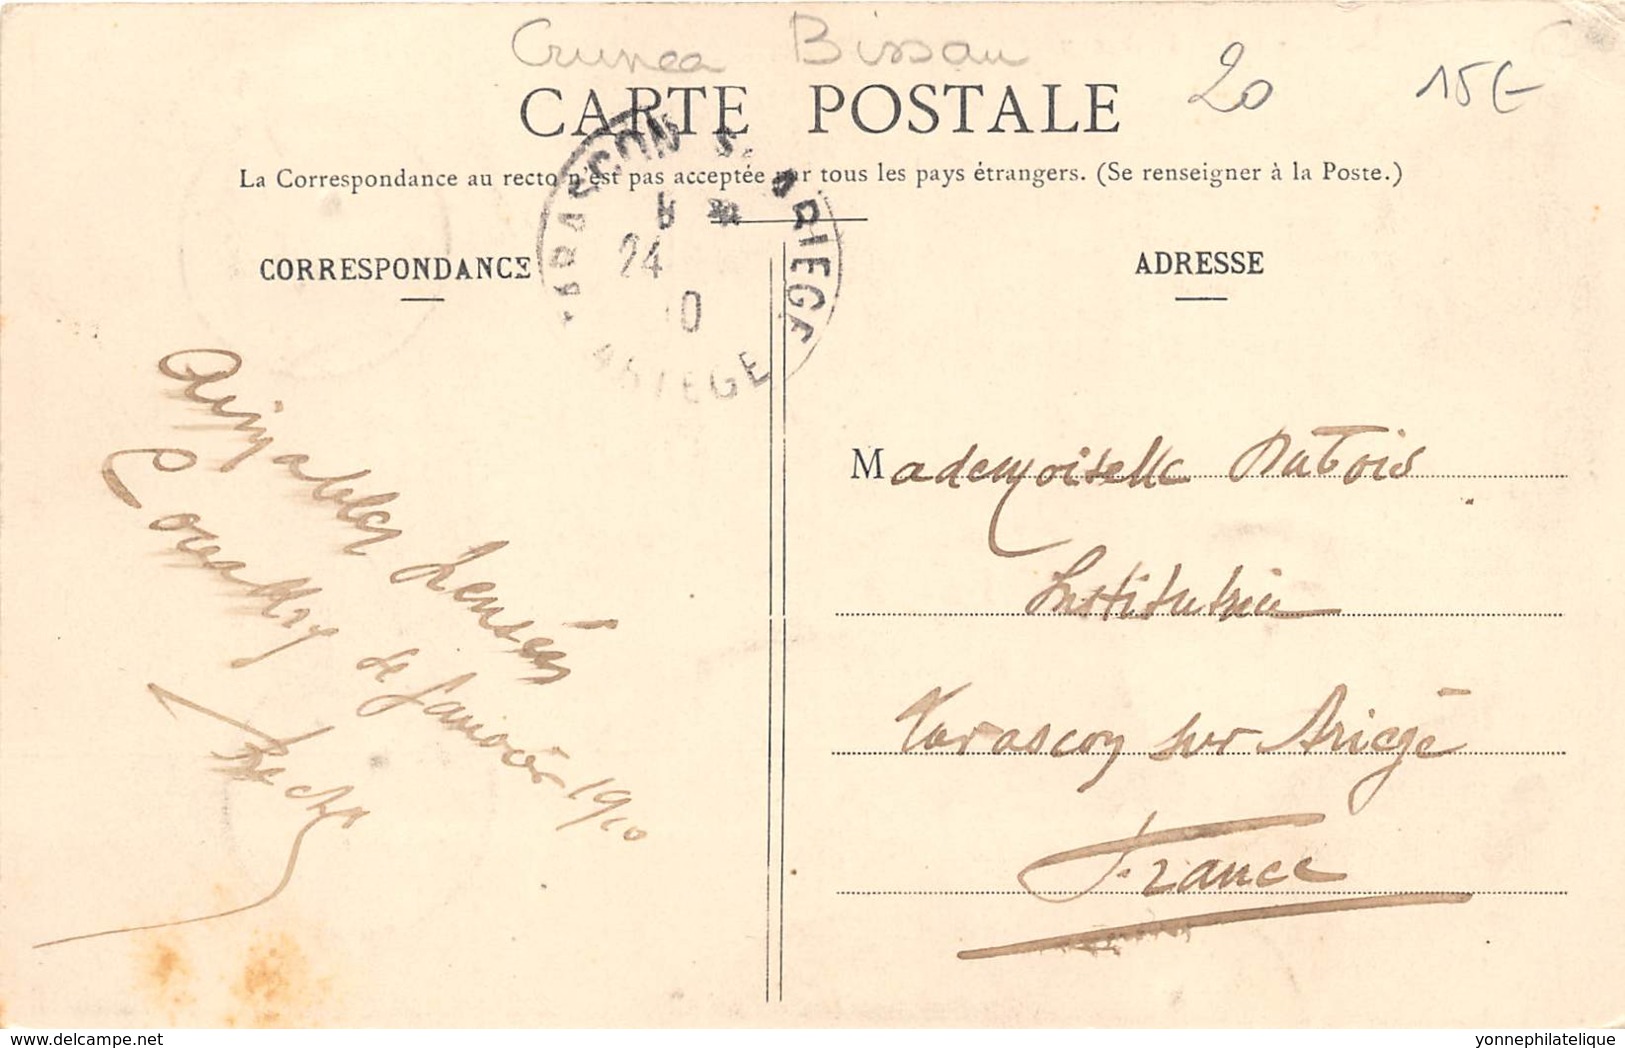 Guinea Bissau
20
15€
CARTE POSTALE
La Correspondance au recto n'est pas acceptée par tous les pays étrangers. (Se renseigner à la Poste.)
TARASCON S. ARIEGE
24
10
ARIEGE
CORRESPONDANCE
Aimables Pensées
Conakry
le Janvier 1910
ADRESSE
Mademoiselle Dubois
Institutrice
Tarascon sur Ariège
France
delcampe.net
yonnephilatelique